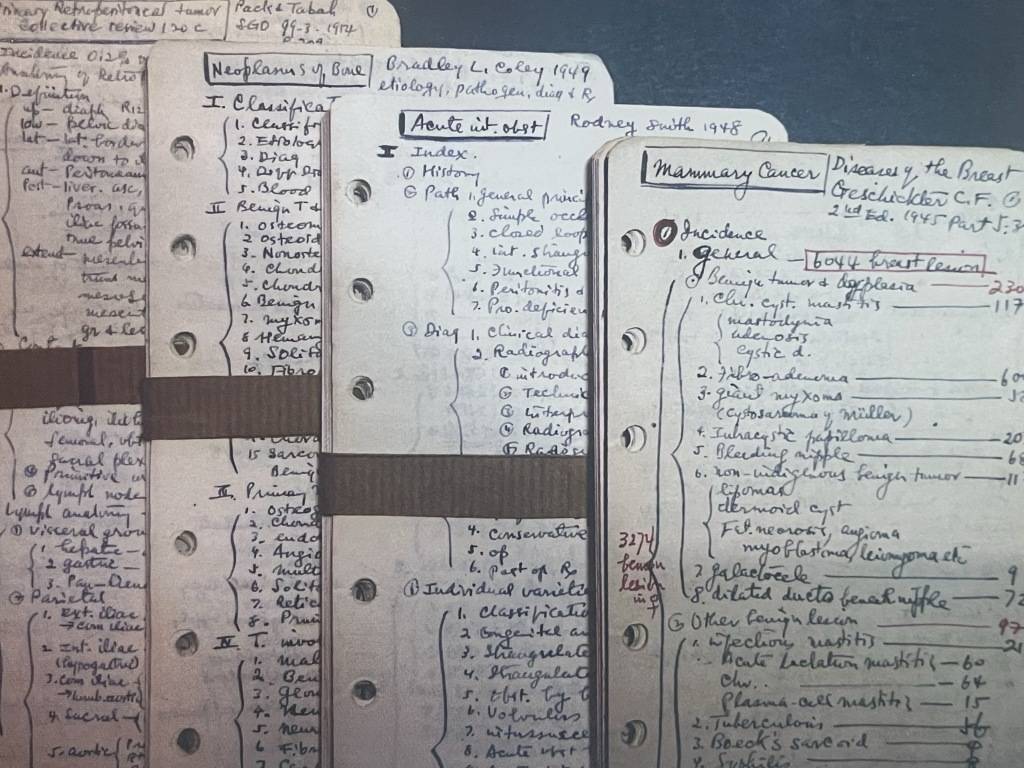 Primary Retroperitoneal tumor
Collective review 120 c
Pack & Tabah
SGO 99-3-1954
Incidence 0.2%
Anatomy of Retro
1. Definition
up — diaph R12
low — pelvic dia
lat — lat. border
down to
ant — Peritoneum
Post — liver. asc,
Psoas,
iliac fossa
true pelvi
extend — presente
mesent
gr & les
ilioing,
femoral, obt
sacral plex
primitive
lymph node
lymph anatomy
① visceral grou
1. hepatic —
2. gastric —
3. Pan-
② Parietal
1. ext. iliac
→ com iliac
2. Int. iliac
(hypogastric)
3. com iliac
→ lumb. aortic
4. Sacral
5. aortic
Neoplasms of Bone
Bradley L. Coley 1949
etiology, pathogen, diag & Rx
I. Classificat
1. Classif
2. Etiolog
3. Diag
4.
5. Blood
II Benign T &
1. Osteom
2. Osteoid
3. Nonoste
4. Chond
5. Chondr
6. Benign
7. myxom
8. Heman
9. Solit
10. Fibro
15 Sarco
Benig
III. Primary
1. Osteog
2. Chond
3. endo
4. Angio
5. mult
6. Solit
7. Retic
8. Prim
IV T. invo
1. mal
2. Ben
3. Glom
4. Neu
5. neu
6. Fibr
Acute int. obst
Rodney Smith 1948
I Index.
① History
② Path 1. general princi
2. Simple occl
3. closed loop
4. int. Strang
5. Functional
6. Peritonitis &
7. Pro. deficien
③ Diag 1. Clinical dia
2. Radiograph
① introduc
② Technic
③ interp
④ Radiogr
⑤ Radios
4. Conservative
5. op
6. Post op Rx
Individual varieti
1. Classificatio
2. Congenital an
3. Strangulate
4. Strangulat
5. Obst. by
6. Volvulus
7. intussusce
8. Acute obst
Mammary Cancer
Diseases of the Breast
Geschickter C.F.
2nd Ed. 1945 Part 5:3
① Incidence
1. general — 6044 breast lesion
① Benign tumor & dysplasia — 230
1. Chr. cyst. mastitis — 117
mastodynia
adenosis
cystic d.
2. Fibro-adenoma — 60
3. giant myxoma
(cystosarcoma of müller)
4. Intracystic papilloma — 20
5. Bleeding nipple — 68
6. non-indigenous benign tumor — 11
lipoma
dermoid cyst
Fat necrosis, angioma
myoblastoma, leiomyoma etc
7. galactocele — 9
8. dilated ducts beneath nipple — 72
3274
benign
lesion
in ♀
② Other benign lesion — 97
1. infectious mastitis — 21
Acute lactation mastitis — 60
chr. . — 64
Plasma-cell mastitis — 15
2. Tuberculosis — 56
3. Boeck's sarcoid
4. Syphilis